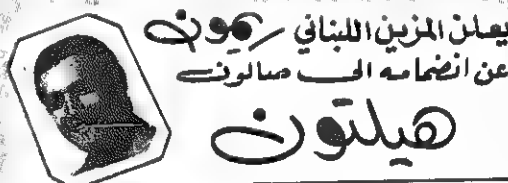 يعلن المزين اللبناني ريمون
عن انضمامه الى صالون
هيلتون